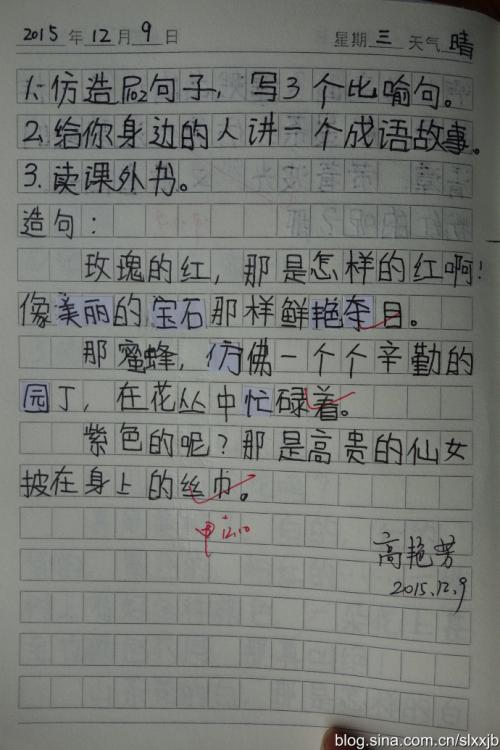 2015年12月9日 星期三 天气晴
1.仿造P102句子，写3个比喻句。
2.给你身边的人讲一个成语故事。
3.读课外书。
造句：
玫瑰的红，那是怎样的红啊！
像美丽的宝石那样鲜艳夺目。
那蜜蜂，仿佛一个个辛勤的
园丁，在花丛中忙碌着。
紫色的呢？那是高贵的仙女
披在身上的丝巾。
12.10
高艳芳
2015.12.9
blog.sina.com.cn/slxxjb